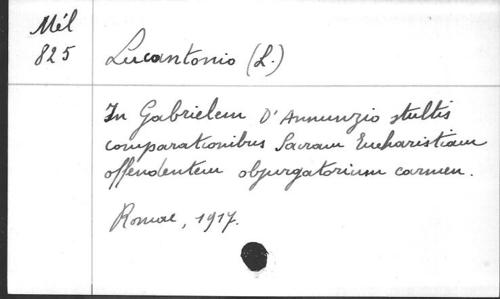 Mél
825
Lucantonio (L.)
In Gabrielem D'Annunzio stultis
comparationibus Sacram Eucharistiam
offendentem objurgatorium carmen.
Romae, 1917.